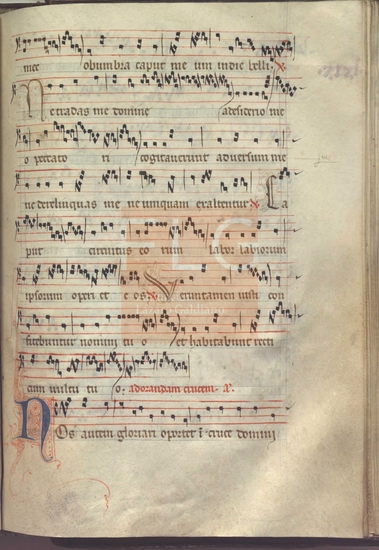 met obumbra caput me um in die belli
Ne tradas me domine a desiderio me
o peccato ri cogitaverunt adversum me
ne derelinquas me ne umquam exaltentur Ca
put circuitus eo rum labor labiorum
ipsorum operi et e os Veruntamen iusti con
fitebuntur nomini tu o et habitabunt recti
cum vultu tu o adorandam crucem a.
Nos autem gloriari oportet i cruce domini